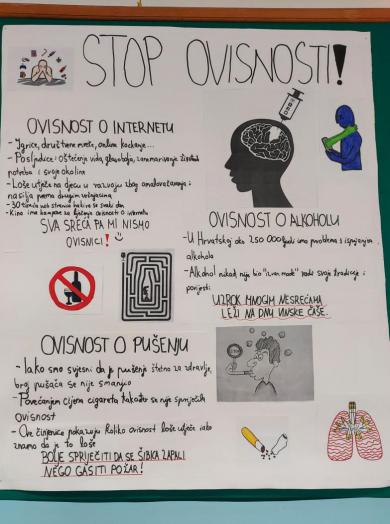 STOP OVISNOSTI!
OVISNOST O INTERNETU
- Igrice, društvene mreže, online kockanje...
- Posljedice: oštećenje vida, glavobolja, zanemarivanje životnih
potreba i svoje okoline
- Loše utječe na djecu u razvoju zbog omalovažavanja i
nasilja prema drugim vršnjacima
- 30 tisuća web stranica hakira se svaki dan
- Kina ima kampove za liječenje ovisnosti o internetu
SVA SREĆA PA MI NISMO
OVISNICI!
OVISNOST O ALKOHOLU
- U Hrvatskoj oko 250 000 ljudi ima problema s ispijanjem
alkohola
- Alkohol nikad nije bio "izvan mode" radi svoje tradicije i
povijesti
UZROK MNOGIM NESREĆAMA
LEŽI NA DNU VINSKE ČAŠE.
OVISNOST O PUŠENJU
- Iako smo svjesni da je pušenje štetno za zdravlje,
broj pušača se nije smanjio
- Povećanjem cijena cigareta također se nije spriječila
ovisnost
- Ove činjenice pokazuju koliko ovisnost loše utječe iako
znamo da je to loše
BOLJE SPRIJEČITI DA SE ŠIBICA ZAPALI
NEGO GASITI POŽAR!